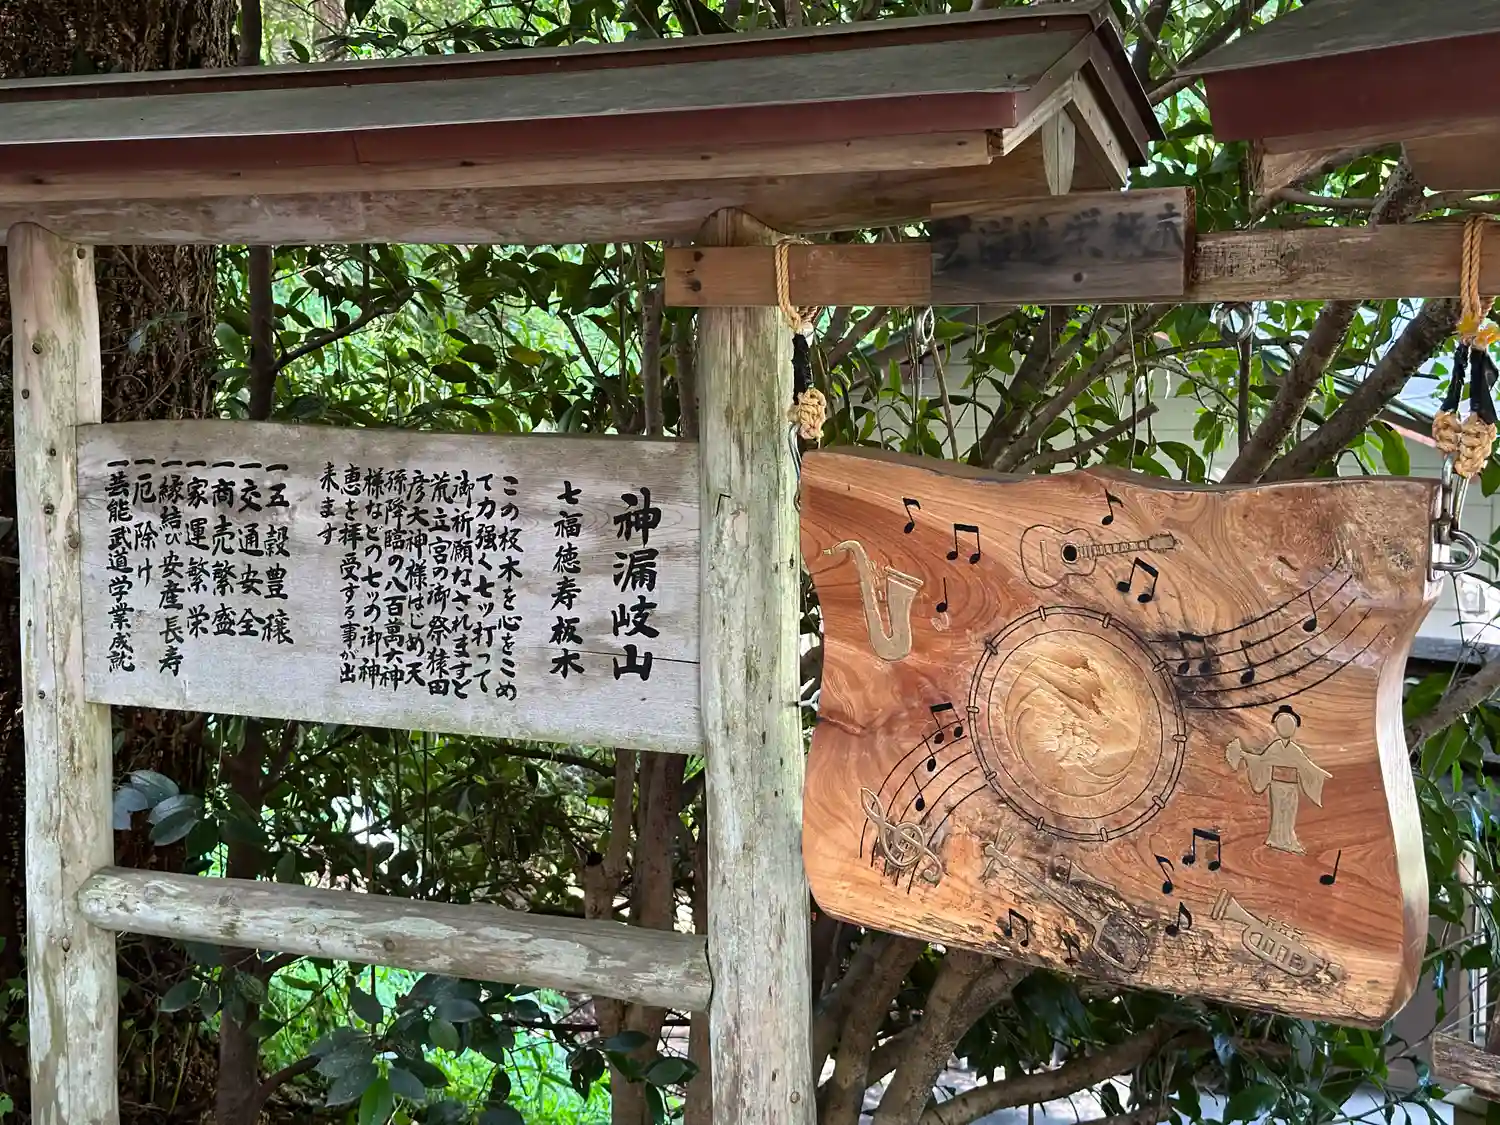 神漏岐山
七福徳寿板木
この板木を心をこめ
て力强く七ッ打って
御祈願なされますと
荒立宮の御祭猿田
彦大神様はじめ天
孫降臨の八百萬大神
様などの七ッの御神
恵を拝受する事が出
来ます
一五穀豊穣
一交通安全
一商売繁盛
一家運繁栄
一縁結び安産長寿
一厄除け
一芸能武道学業成就